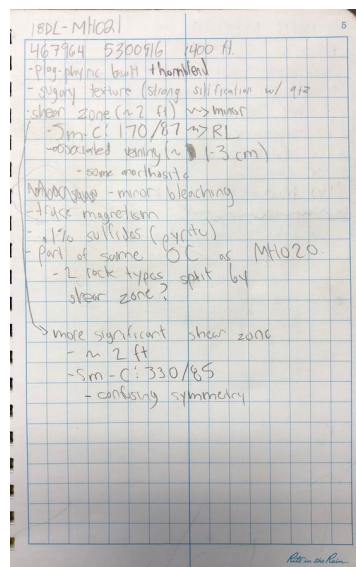 5
18DL-MH021
467964 5300916 1400 ft.
-plag-phyric basalt + hornblend
- sugary texture (strong silification w/ qtz
-shear zone (~2 ft) ~> minor
-Sm-C: 170/87 ~> RL
-associated veining (~ 1-3 cm)
- some anorthosite
- minor bleaching
-trace magnetism
- .1% sulfides (pyrite)
-Part of same OC as MH020.
- 2 rock types split by
shear zone?
more significant shear zone
- ~ 2 ft
-Sm-C: 330/85
- confusing symmetry
Rite in the Rain